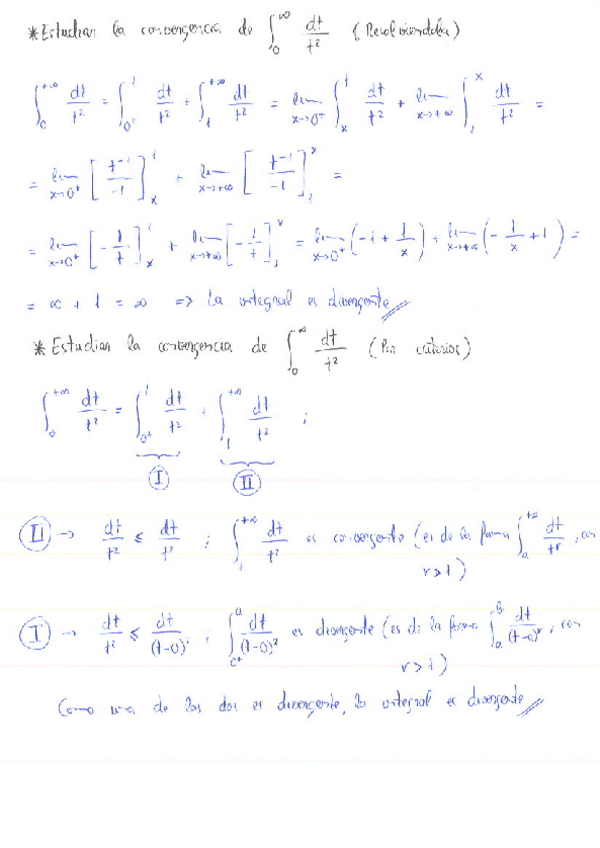 * Estudiar la convergencia de ∫₀^∞ dt/t² (Resolviendola)
∫₀^{+∞} dt/t² = ∫_{0⁺}^1 dt/t² + ∫_1^{+∞} dt/t² = lim_{x→0⁺} ∫_x^1 dt/t² + lim_{x→+∞} ∫_1^x dt/t² =
= lim_{x→0⁺} [t^{-1}/-1]_x^1 + lim_{x→+∞} [t^{-1}/-1]_1^x =
= lim_{x→0⁺} [-1/t]_x^1 + lim_{x→+∞} [-1/t]_1^x = lim_{x→0⁺} (-1 + 1/x) + lim_{x→+∞} (-1/x + 1) =
= ∞ + 1 = ∞ => la integral es divergente
* Estudiar la convergencia de ∫₀^∞ dt/t² (Por criterios)
∫₀^{+∞} dt/t² = ∫_{0⁺}^1 dt/t² + ∫_1^{+∞} dt/t² ;
I II
II → dt/t² ≤ dt/t² ; ∫_1^{+∞} dt/t² es convergente (es de la forma ∫_a^{+∞} dt/t^r, con
r>1)
I → dt/t² ≤ dt/(t-0)² ; ∫_{0⁺}^a dt/(t-0)² es divergente (es de la forma ∫_a^b dt/(t-a)^r, con
r>1)
Como una de las dos es divergente, la integral es divergente